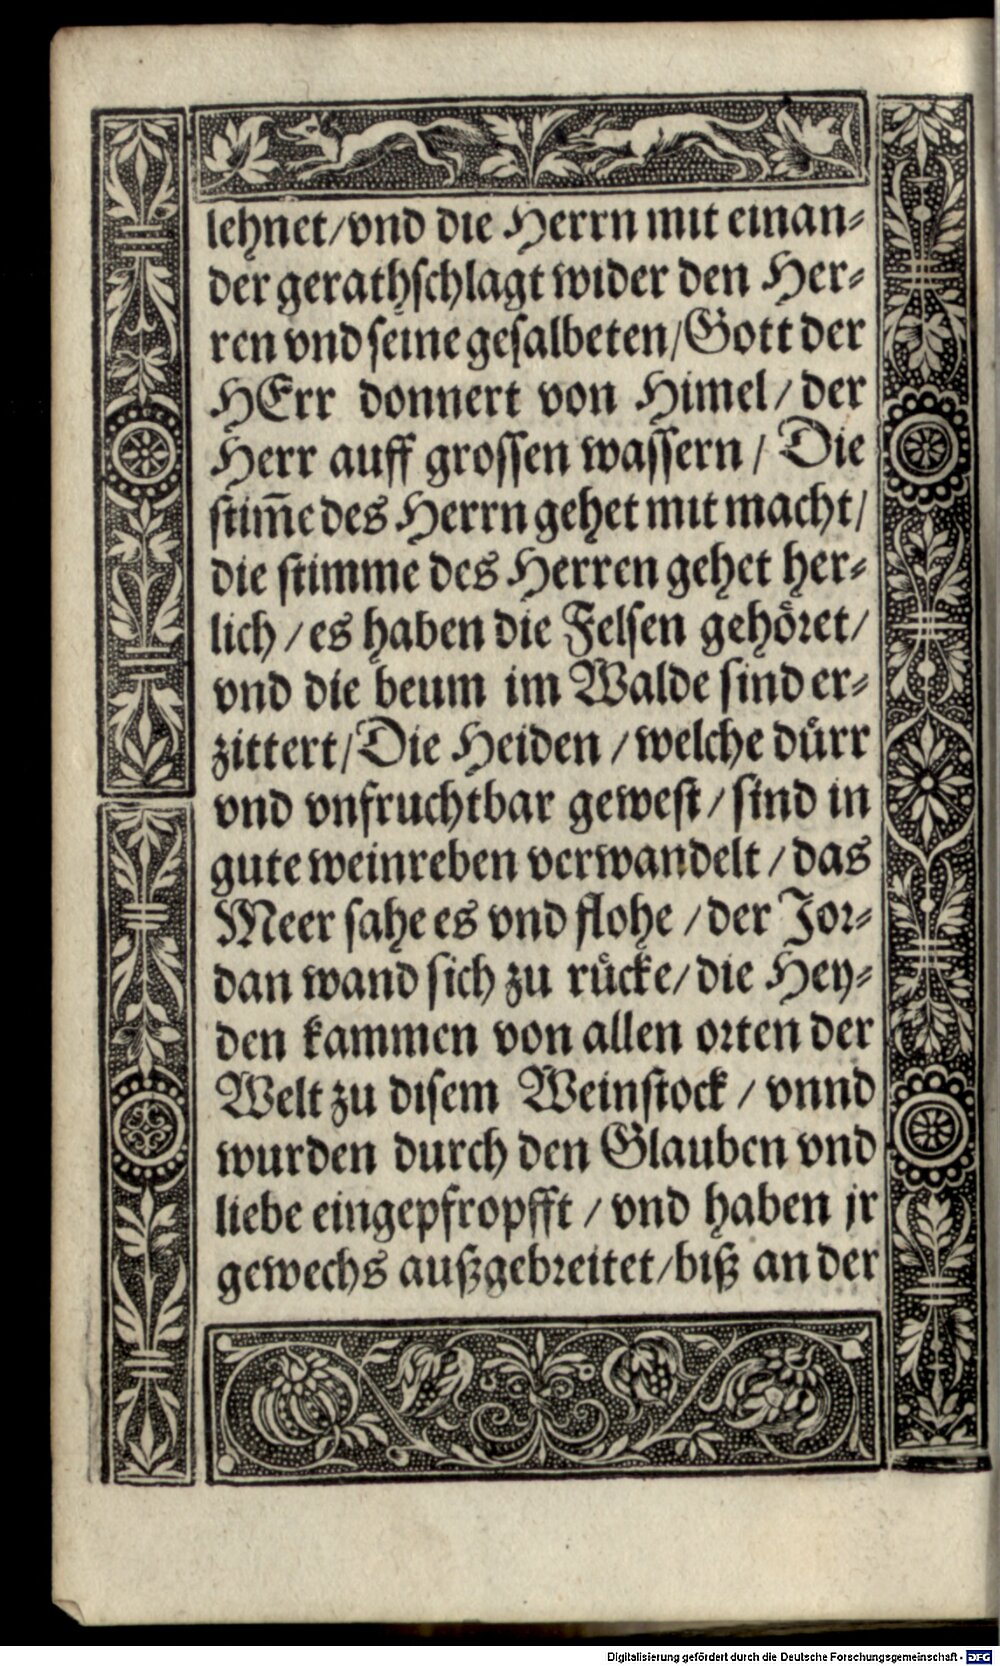 lehnet/vnd die Herrn mit einan⸗
der gerathschlagt wider den Her⸗
ren vnd seine gesalbeten/Gott der
HErr donnert von Himel/ der
Herr auff grossen wassern / Die
stim̄e des Herrn gehet mit macht/
die stimme des Herren gehet her⸗
lich / es haben die Felsen gehoͤret/
vnd die beum im Walde sind er⸗
zittert/Die Heiden / welche duͤrr
vnd vnfruchtbar gewest/ sind in
gute weinreben verwandelt / das
Meer sahe es vnd flohe / der Jor⸗
dan wand sich zu ruͤcke/ die Hey⸗
den kammen von allen orten der
Welt zu disem Weinstock / vnnd
wurden durch den Glauben vnd
liebe eingepfropfft / vnd haben jr
gewechs außgebreitet/biß an der
Digitalisierung gefördert durch die Deutsche Forschungsgemeinschaft - DFG